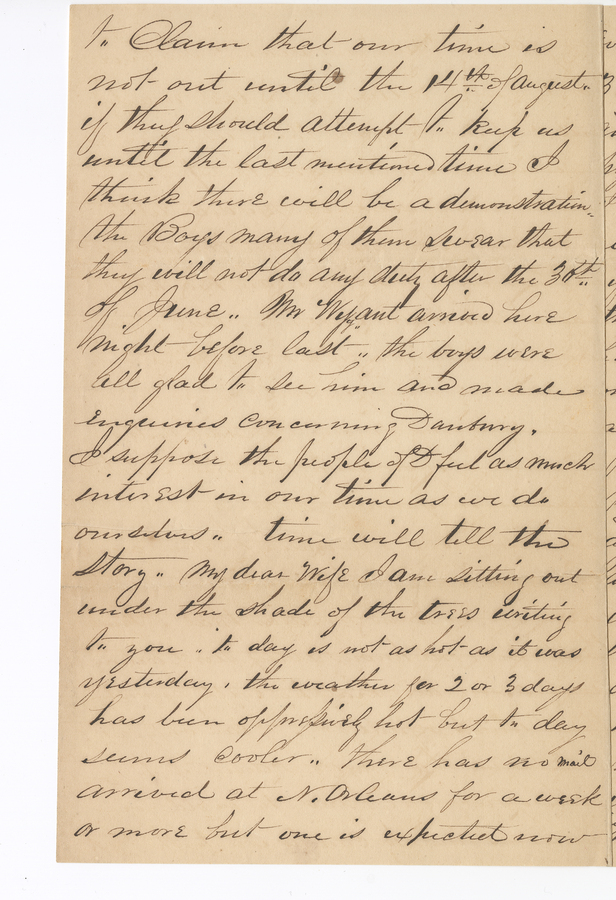 to Claim that our time is
not out until the 14th of august"
if they should attempt to keep us
until the last mentioned time I
think there will be a demonstration"
the Boys many of them swear that
they will not do any duty after the 30th"
of June" Mr Weyant arrived here
night before last" the boys were
all glad to see him and made
enquiries concerning Danbury.
I suppose the people of D feel as much
interest in our time as we do
ourselves" time will tell the
Story" My dear Wife I am sitting out
under the shade of the trees writing
to you. to day is not as hot as it was
yesterday. the weather for 2 or 3 days
has been oppressively hot but to day
seems cooler" there has no mail
arrived at N. Orleans for a week
or more but one is expected now